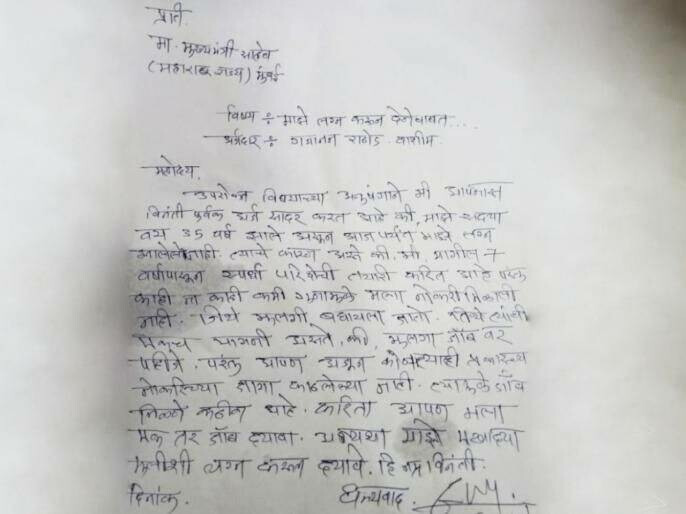 प्रति,
मा. मुख्यमंत्री साहेब
(महाराष्ट्र राज्य) मुंबई
विषय ÷ माझे लग्न करून देणेबाबत...
अर्जदार ÷ गजानन राठोड वाशीम
महोदय,
उपरोक्त विषयाच्या अनुषंगाने मी आपणास
विनंती पूर्वक अर्ज सादर करत आहे की, माझे सद्या
वय 35 वर्ष झाले असून आज पर्यंत माझे लग्न
झालेले नाही. त्याचे कारण असे की, मी मागील 7
वर्षापासून स्पर्धा परिक्षेची तयारी करित आहे परंतु
काही न काही कमी गुणामुळे मला नोकरी मिळाली
नाही. जिथे मुलगी बघायला जातो. तिथे त्यांची
एकच मागणी असते की, मुलगा जॉब वर
पाहीजे. परंतु आपण अजून कोणत्याही प्रकारच्या
नोकरिच्या जागा काढलेल्या नाही. त्यामुळे जॉब
मिळणे कठीण आहे. करिता आपण मला
एक तर जॉब द्यावा. अन्यथा माझे एखाद्या
मुलीशी लग्न करून द्यावे. हि नम्र विनंती.
दिनांक. धन्यवाद.